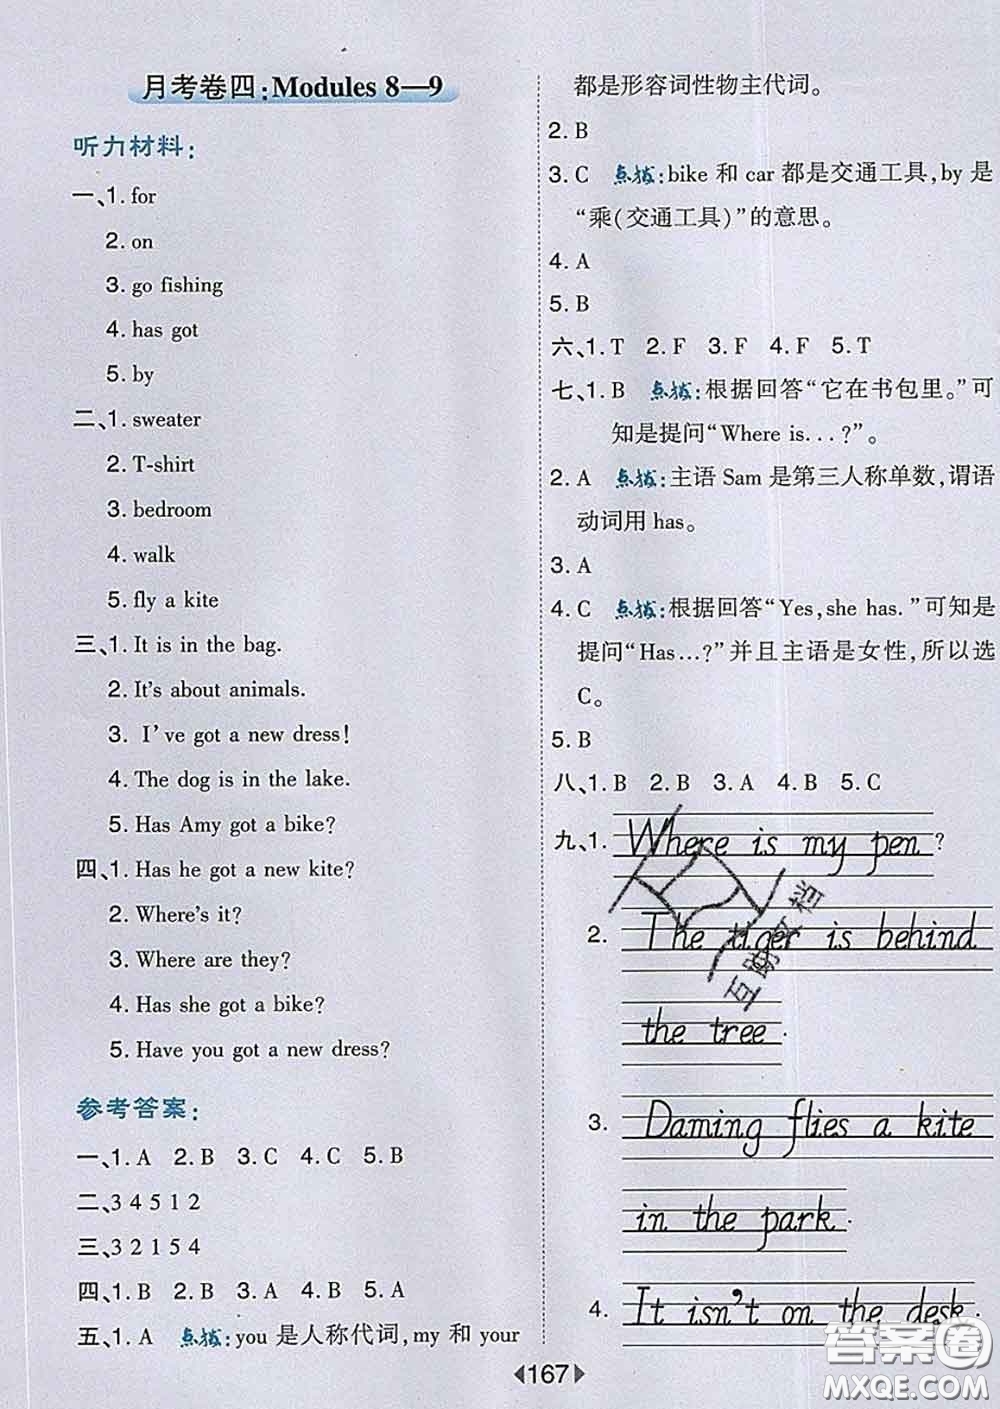 月考卷四:Modules 8—9
听力材料:
一、1. for
2. on
3. go fishing
4. has got
5. by
二、1. sweater
2. T-shirt
3. bedroom
4. walk
5. fly a kite
三、1. It is in the bag.
2. It's about animals.
3. I've got a new dress!
4. The dog is in the lake.
5. Has Amy got a bike?
四、1. Has he got a new kite?
2. Where's it?
3. Where are they?
4. Has she got a bike?
5. Have you got a new dress?
参考答案:
一、1. A 2. B 3. C 4. C 5. B
二、3 4 5 1 2
三、3 2 1 5 4
四、1. B 2. B 3. A 4. B 5. A
五、1. A 点拨:you 是人称代词,my 和 your
都是形容词性物主代词。
2. B
3. C 点拨:bike 和 car 都是交通工具,by 是
“乘(交通工具)”的意思。
4. A
5. B
六、1. T 2. F 3. F 4. F 5. T
七、1. B 点拨:根据回答“它在书包里。”可
知是提问“Where is. . . ?”。
2. A 点拨:主语 Sam 是第三人称单数,谓语
动词用 has。
3. A
4. C 点拨:根据回答“Yes, she has.”可知是
提问“Has…?”并且主语是女性,所以选
C。
5. B
八、1. B 2. B 3. A 4. B 5. C
九、1. Where is my pen?
2. The tiger is behind
the tree.
3. Daming flies a kite
in the park.
4. It isn't on the desk.
互助文档
167
答案圈
MXQE.COM